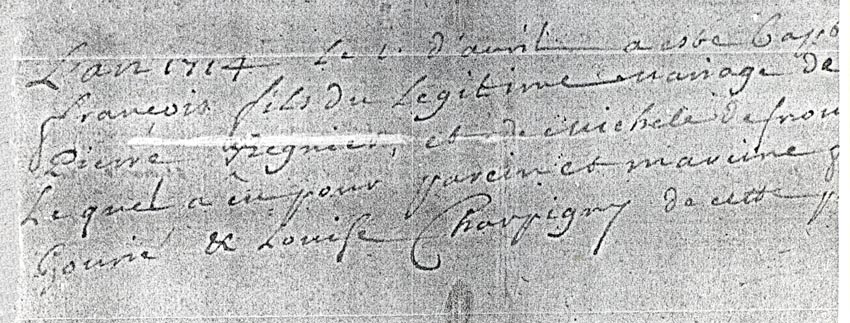 L'an 1714 Le 1. d'avril a esbe bapb
francois fils du Legitime mariage de
Pierre Fregnier, et de michele defrou
Lequel a eu pour parein et mareine
Gourié & Louise Charpigny de cette p